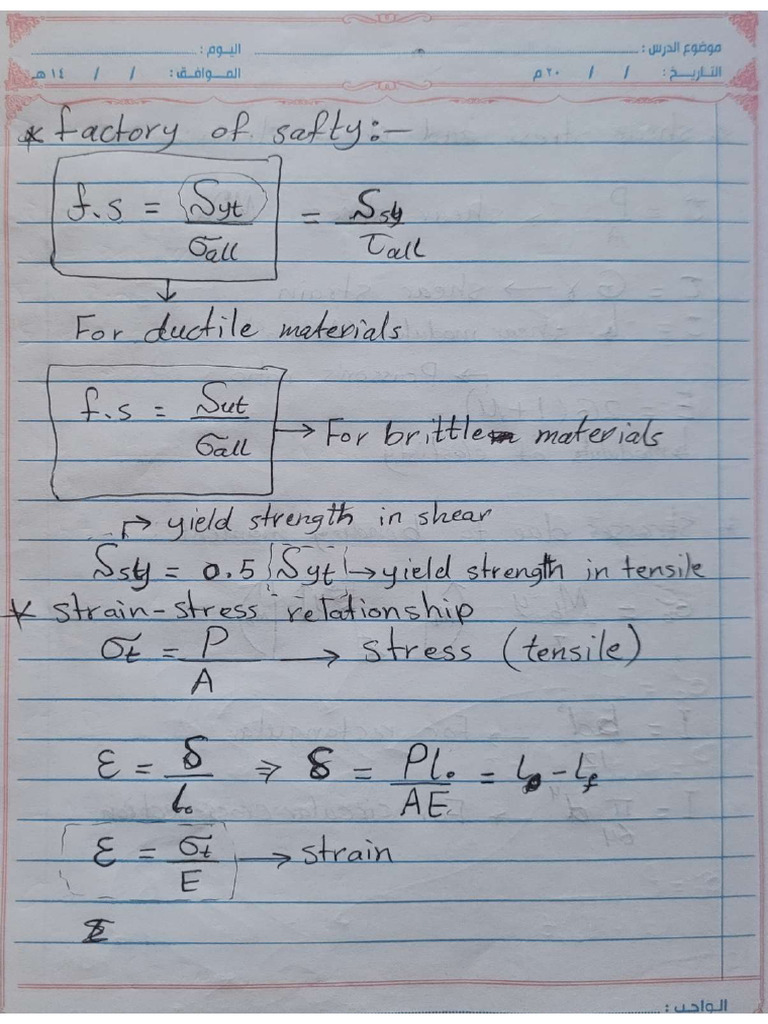 موضوع الدرس : اليوم :
التاريخ : / / ٢٠ م الموافق : / / ١٤ هـ
* factory of safty:-
f.s = Syt / σall = Ssy / τall
For ductile materials
f.s = Sut / σall → For brittle materials
→ yield strength in shear
Ssy = 0.5 Syt → yield strength in tensile
* strain-stress relationship
σt = P / A → stress (tensile)
ε = δ / l₀ ⇒ δ = Pl₀ / AE = l₀ - lf
ε = σt / E → strain
الواجب :